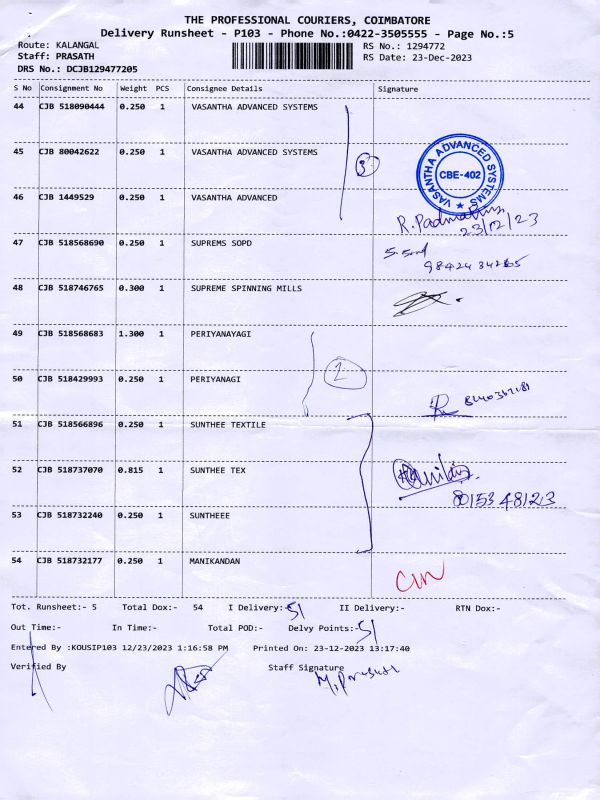 THE PROFESSIONAL COURIERS, COIMBATORE
Delivery Runsheet - P103 - Phone No.:0422-3505555 - Page No.:5
Route: KALANGAL
Staff: PRASATH
DRS No.: DCJB129477205
RS No.: 1294772
RS Date: 23-Dec-2023
S No Consignment No Weight PCS Consignee Details Signature
44 CJB 518090444 0.250 1 VASANTHA ADVANCED SYSTEMS
45 CJB 80042622 0.250 1 VASANTHA ADVANCED SYSTEMS
3
VASANTHA ADVANCED SYSTEMS
CBE-402
46 CJB 1449529 0.250 1 VASANTHA ADVANCED
23/12/23
47 CJB 518568690 0.250 1 SUPREMS SOPD
48 CJB 518746765 0.300 1 SUPREME SPINNING MILLS
49 CJB 518568683 1.300 1 PERIYANAYAGI
2
50 CJB 518429993 0.250 1 PERIYANAGI
51 CJB 518566896 0.250 1 SUNTHEE TEXTILE
52 CJB 518737070 0.815 1 SUNTHEE TEX
8015348123
53 CJB 518732240 0.250 1 SUNTHEEE
54 CJB 518732177 0.250 1 MANIKANDAN
Tot. Runsheet:- 5 Total Dox:- 54 I Delivery:- 51 II Delivery:- RTN Dox:-
Out Time:- In Time:- Total POD:- Delvy Points:- 51
Entered By :KOUSIP103 12/23/2023 1:16:58 PM Printed On: 23-12-2023 13:17:40
Verified By Staff Signature